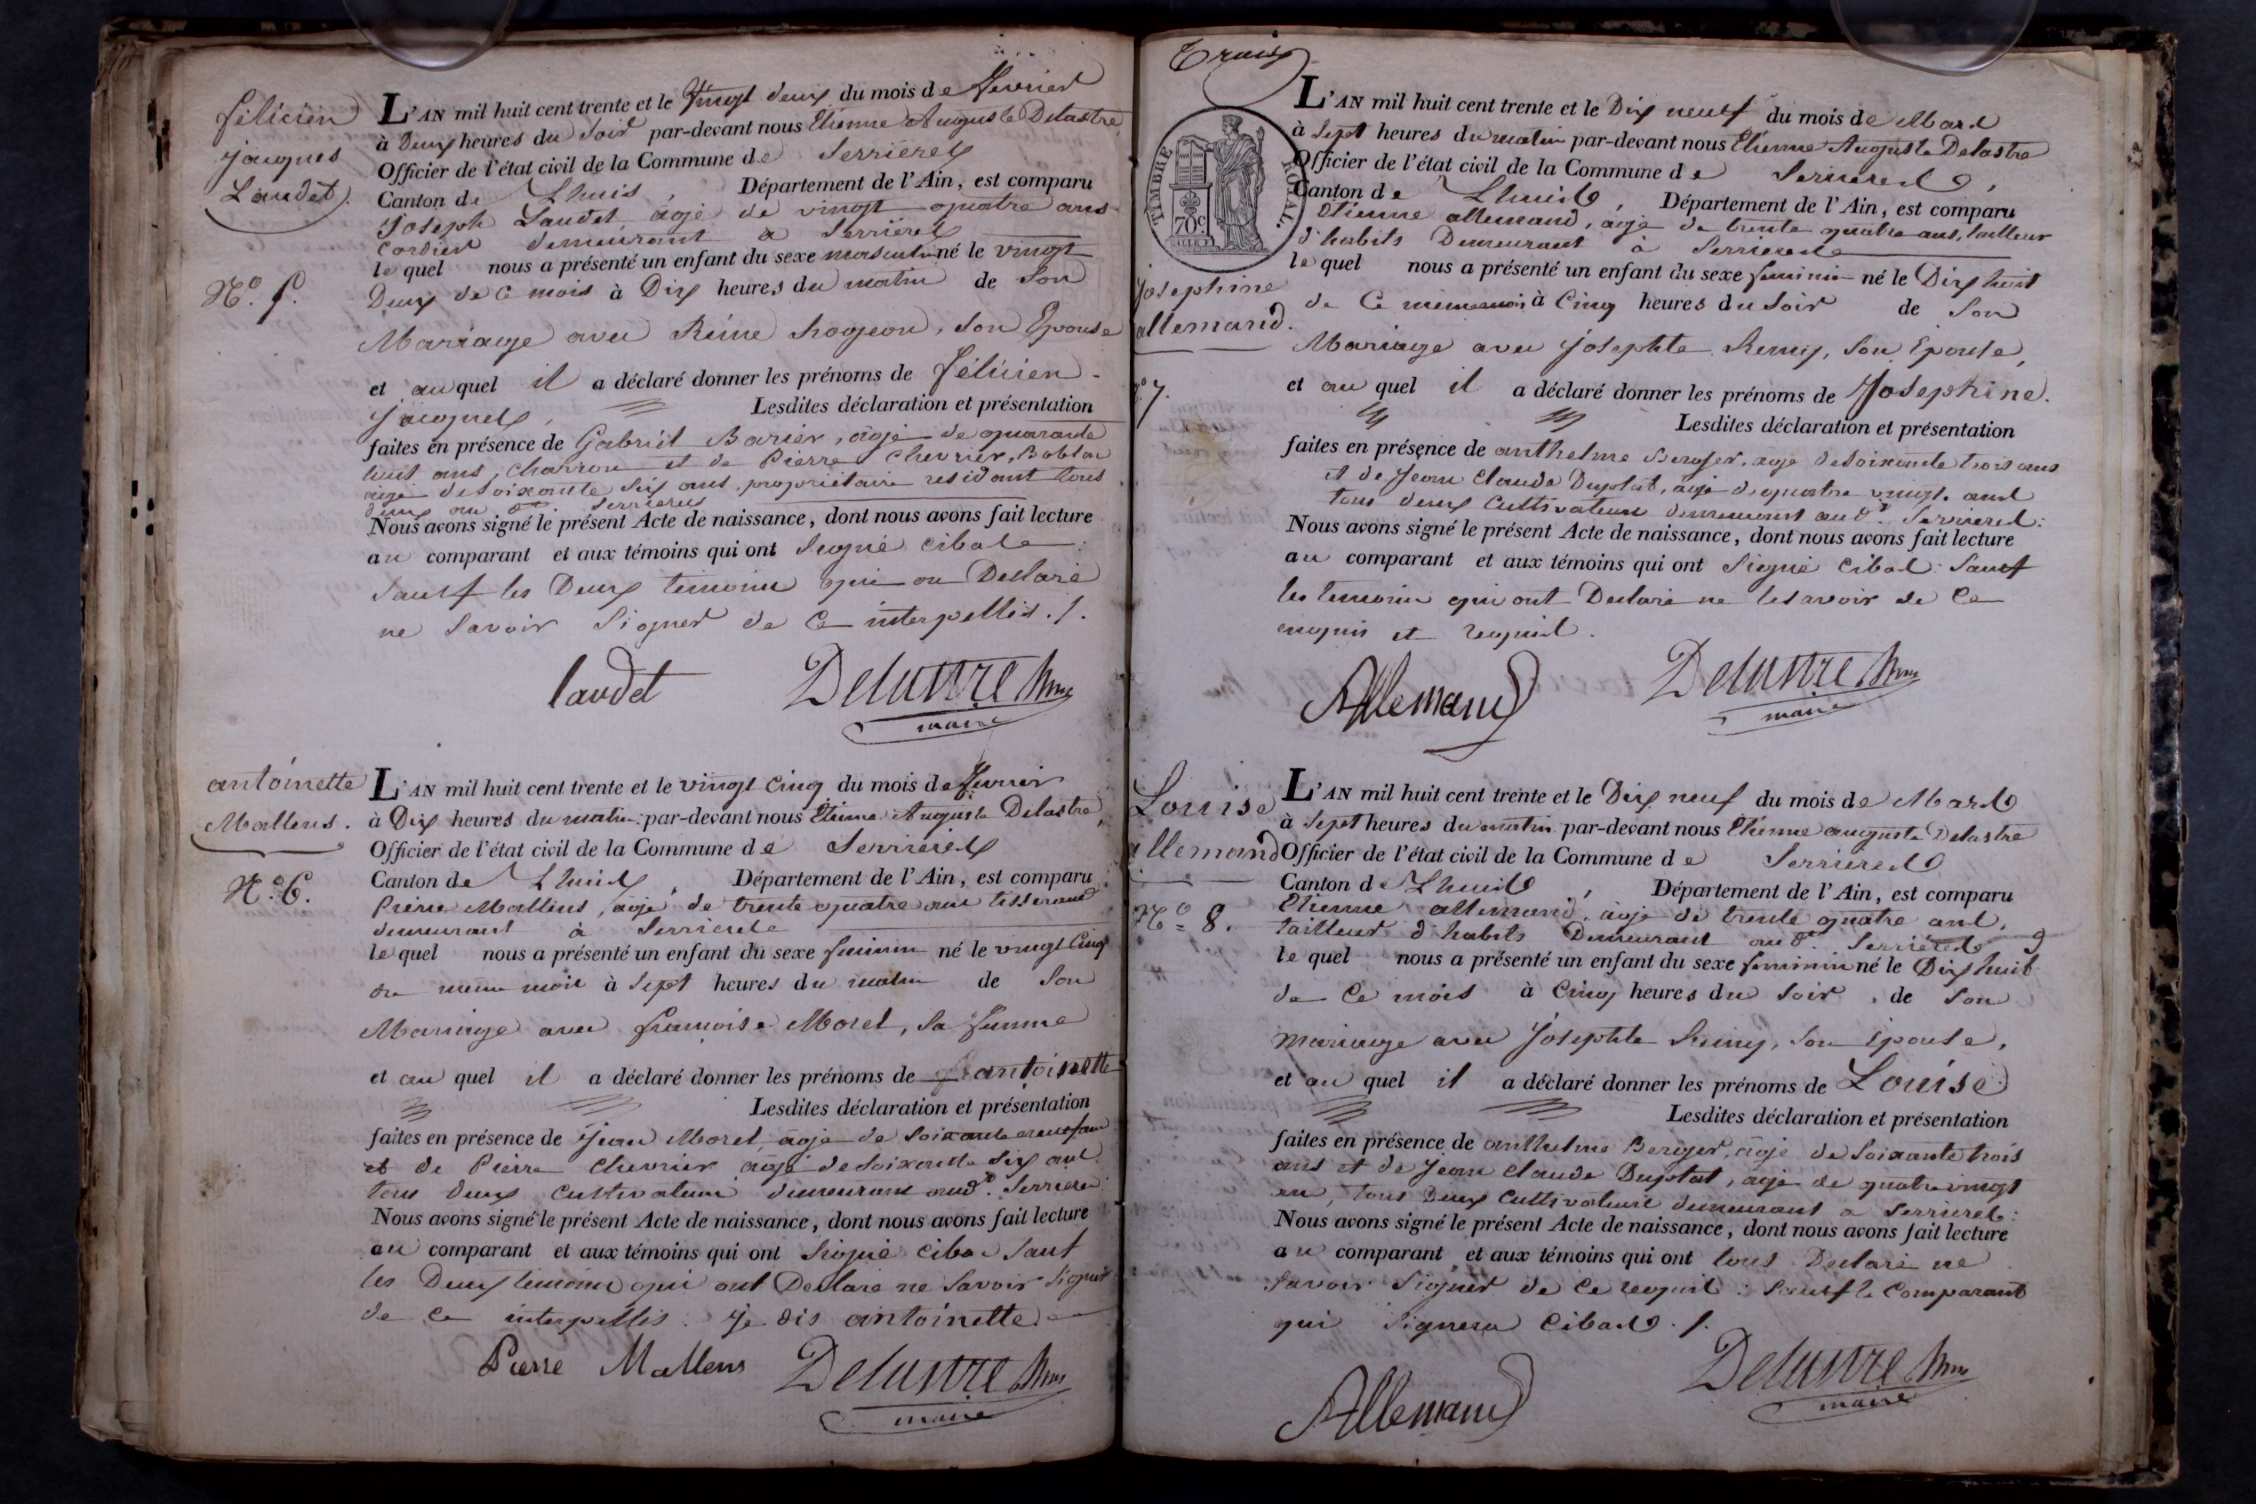 félicien
jacques
Laudet.
N.° 5.
L'AN mil huit cent trente et le Vingt deux du mois de fevrier
à Deux heures du Soir par-devant nous Etienne Auguste Delastre
Officier de l'état civil de la Commune de Serrieres
Canton de Lhuis, Département de l'Ain, est comparu
Joseph Laudet agé de vingt quatre ans
cordier demeurant à Serrieres
le quel nous a présenté un enfant du sexe masculin né le vingt
Deux de ce mois à Dix heures du matin de Son
Mariage avec Reine , Son Epouse
et au quel il a déclaré donner les prénoms de félicien
Jacques, Lesdites déclaration et présentation
faites en présence de Gabriel Barier, agé de quarante
huit ans, charron et de Pierre Chevrier,
agé de Soixante Six ans, propriétaire residant tous
deux au dt. Serrieres
Nous avons signé le présent Acte de naissance, dont nous avons fait lecture
au comparant et aux témoins qui ont Signé
Sauf les Deux temoins qui on Declaré
ne Savoir Signer de Ce interpellés ./.
laudet Delastre
maire
antoinette
Mallens.
N.° 6.
L'AN mil huit cent trente et le vingt cinq du mois de fevrier
à Dix heures du matin par-devant nous Etienne Auguste Delastre,
Officier de l'état civil de la Commune de Serrieres
Canton de Lhuis, Département de l'Ain, est comparu
Pierre Mallens, agé de trente quatre ans tisserand
demeurant à Serrieres
le quel nous a présenté un enfant du sexe feminin né le vingt Cinq
du meme mois à Sept heures du matin de Son
Mariage avec françoise Moret, Sa femme
et au quel il a déclaré donner les prénoms de antoinette
Lesdites déclaration et présentation
faites en présence de Jean Moret, agé de Soixante
et de Pierre Chevrier agé de Soixante Six ans
tous deux cultivateurs demeurant aud. Serrieres
Nous avons signé le présent Acte de naissance, dont nous avons fait lecture
au comparant et aux témoins qui ont Signé Sauf
les Deux temoins qui ont Declaré ne Savoir Signer
de Ce interpellés. Je dis antoinette
Pierre Mallens Delastre
maire
Trois
TIMBRE ROYAL.
70c.
L'AN mil huit cent trente et le Dix neuf du mois de Mars
à Sept heures du matin par-devant nous Etienne Auguste Delastre
Officier de l'état civil de la Commune de Serrieres,
Canton de Lhuis, Département de l'Ain, est comparu
Etienne allemand, agé de trente quatre ans, tailleur
d'habits Demeurant à Serrieres
le quel nous a présenté un enfant du sexe feminin né le Dix huit
de Ce meme mois à Cinq heures du Soir de Son
Mariage avec Josephte Remy, Son Epouse,
et au quel il a déclaré donner les prénoms de Josephine.
Lesdites déclaration et présentation
faites en présence de anthelme Berger, agé de Soixante trois ans
et de Jean Claude Duplat, agé de quatre vingt ans
tous deux Cultivateurs demeurant au dt. Serrieres.
Nous avons signé le présent Acte de naissance, dont nous avons fait lecture
au comparant et aux témoins qui ont Signé Sauf
les temoins qui ont Declaré ne le Savoir de Ce
enquis et requis.
Josephine
allemand.
7.
Allemand Delastre
maire
Louise
allemand
N.° 8.
L'AN mil huit cent trente et le Dix neuf du mois de Mars
à Sept heures du matin par-devant nous Etienne auguste Delastre
Officier de l'état civil de la Commune de Serrieres
Canton de Lhuis, Département de l'Ain, est comparu
Etienne allemand, agé de trente quatre ans,
tailleur d'habits Demeurant au dt. Serrieres
le quel nous a présenté un enfant du sexe feminin né le Dix huit
de Ce mois à Cinq heures du Soir, de Son
mariage avec Josephte Remy, Son Epouse,
et au quel il a déclaré donner les prénoms de Louise
Lesdites déclaration et présentation
faites en présence de anthelme Berger, agé de Soixante trois
ans et de Jean Claude Duplat, agé de quatre vingt
an, tous Deux Cultivateurs demeurant a Serrieres.
Nous avons signé le présent Acte de naissance, dont nous avons fait lecture
au comparant et aux témoins qui ont tous Declaré ne
Savoir Signer de Ce requis : Sauf le Comparant
qui Signera ./.
Allemand Delastre
maire